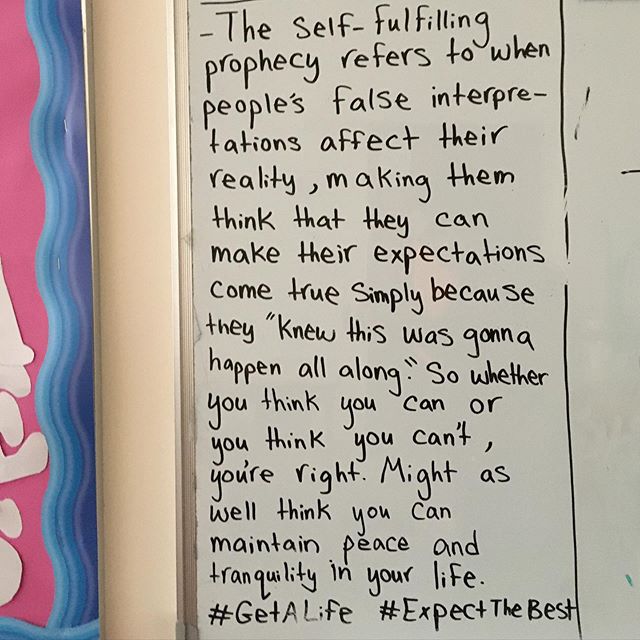 - The self-fulfilling
prophecy refers to when
people's false interpre-
tations affect their
reality, making them
think that they can
make their expectations
come true simply because
they "knew this was gonna
happen all along." So whether
you think you can or
you think you can't,
you're right. Might as
well think you can
maintain peace and
tranquility in your life.
#GetALife #ExpectTheBest